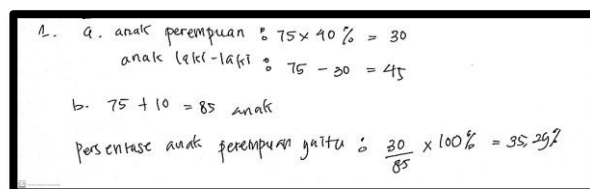 1. a. anak perempuan : 75 x 40 % = 30
anak laki-laki : 75 - 30 = 45
b. 75 + 10 = 85 anak
Persentase anak perempuan yaitu : 30/85 x 100% = 35,29%